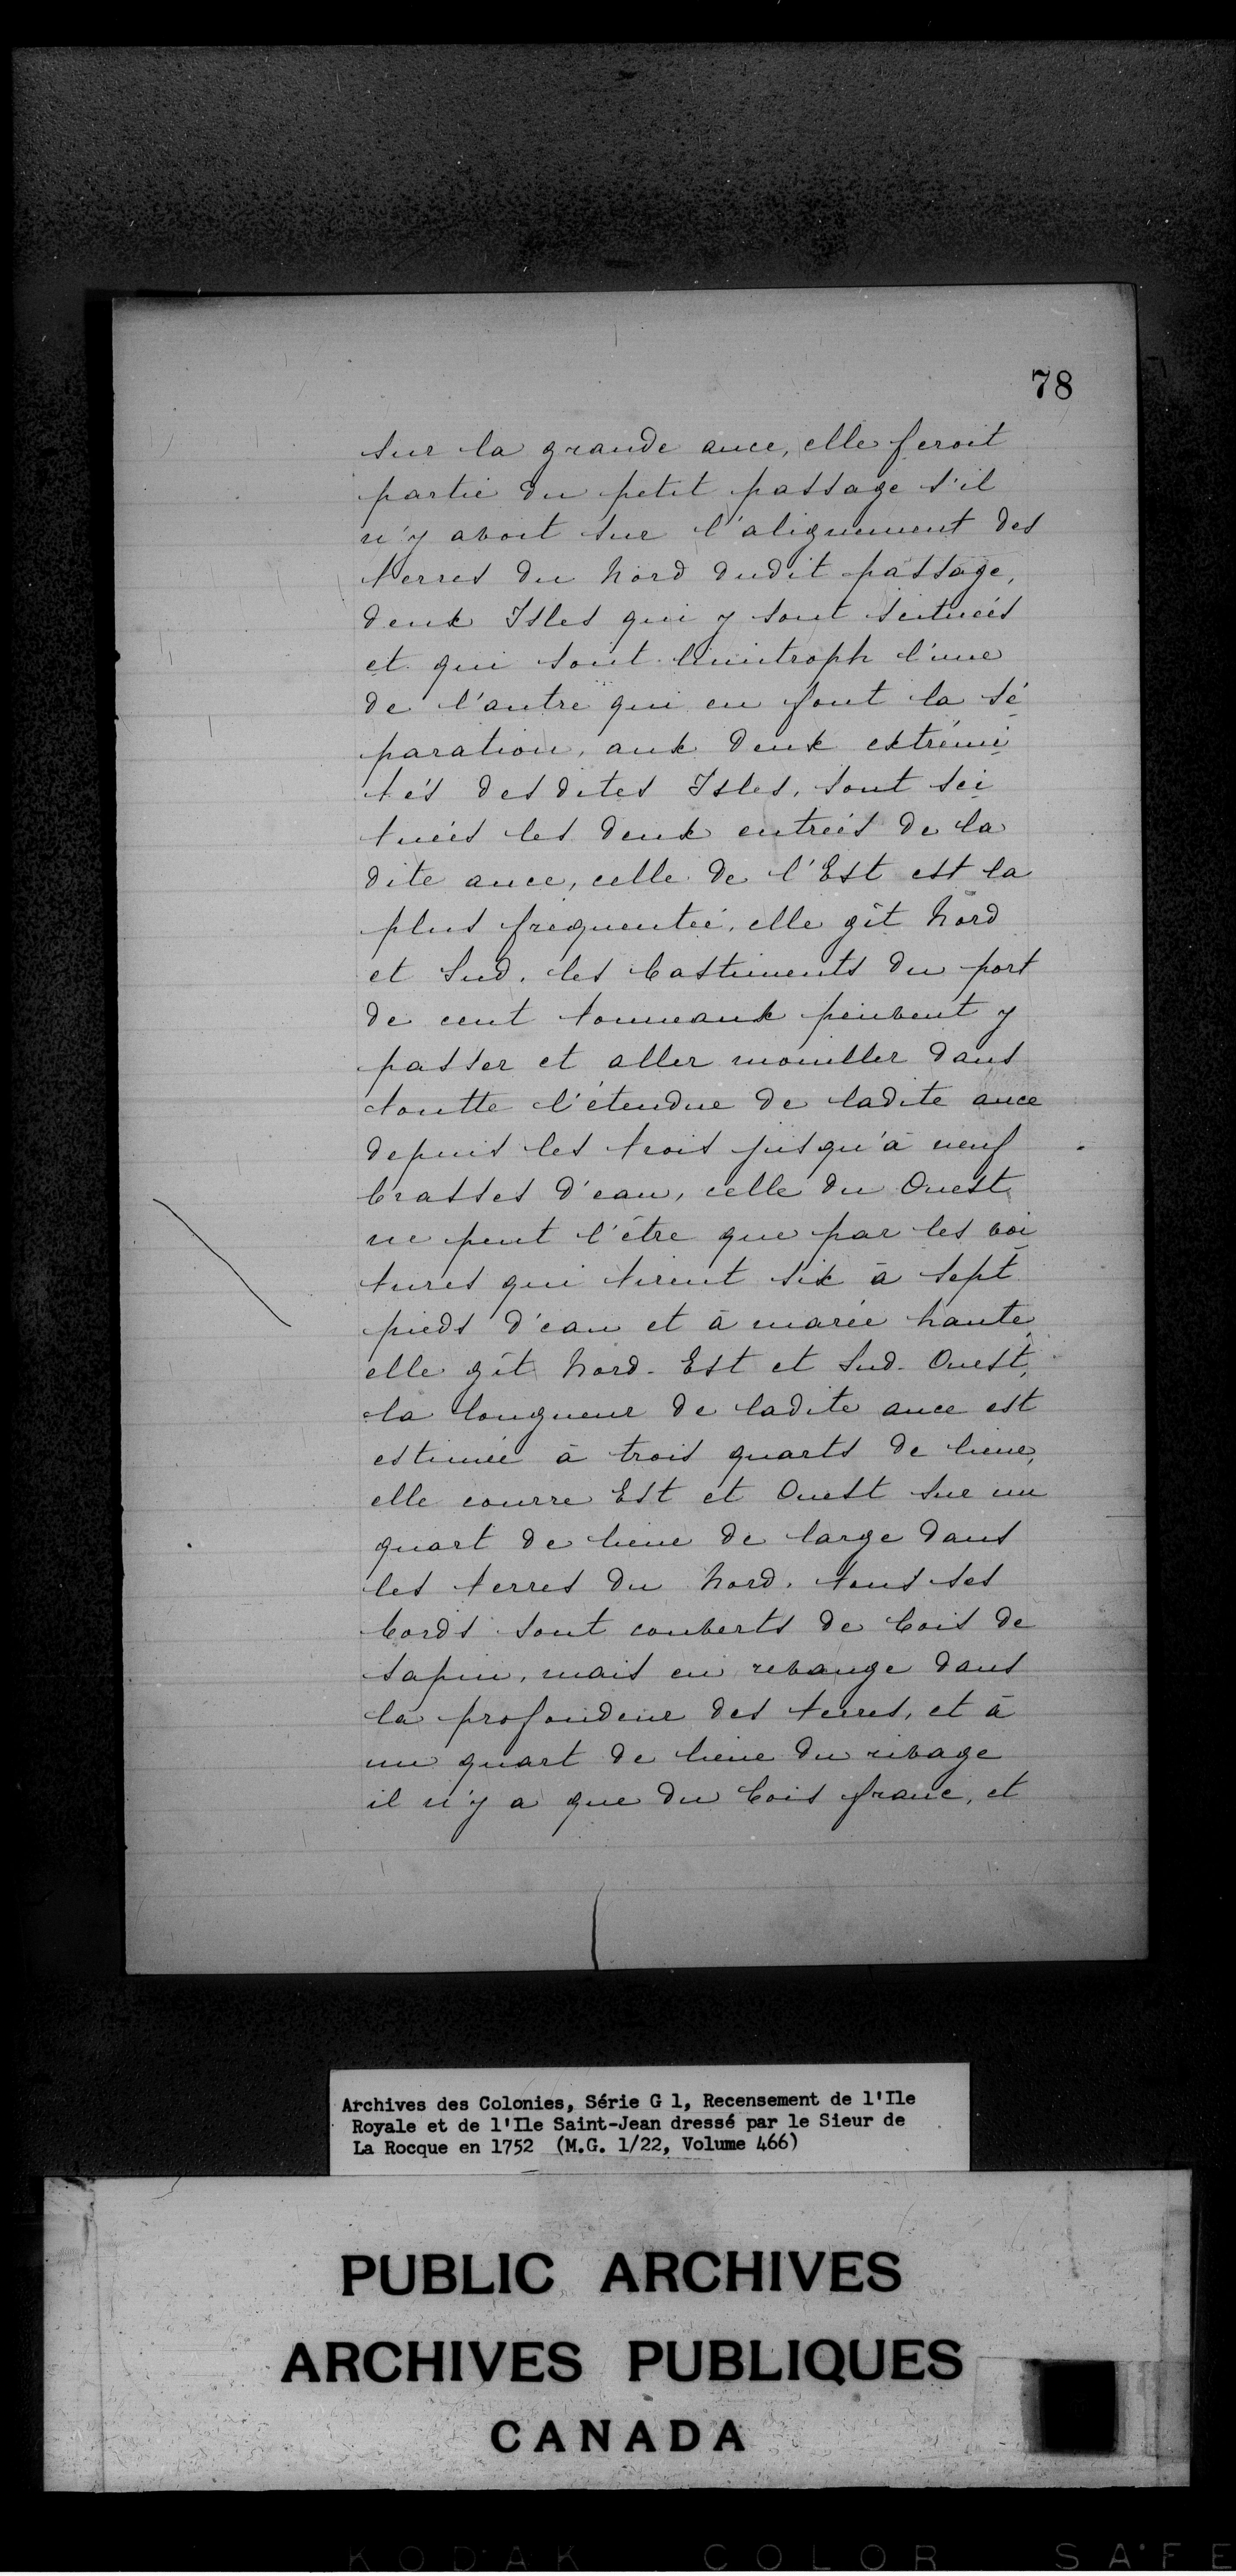 78
sur la grande ance, elle feroit
partie du petit passage s'il
n'y avoit sur l'alignement des
terres du Nord dudit passage,
deux Isles qui y sont scituées
et qui sont limitroph l'une
de l'autre qui en font la sé
paration, aux deux extrémi
tés desdites Isles, sont sci
tuées les deux entrées de la
dite ance, celle de l'Est est la
plus frequentée, elle gît Nord
et Sud, les bastiments du port
de cent tonneaux peuvent y
passer et aller mouiller dans
toutte l'étendue de ladite ance
depuis les trois jusqu'à neuf
brasses d'eau, celle du Ouest
ne peut l'être que par les voi
tures qui tirent six à sept
pieds d'eau et à marée haute
elle gît Nord-Est et Sud-Ouest,
la longueur de ladite ance est
estimée à trois quarts de lieue,
elle courre Est et Ouest sur un
quart de lieue de large dans
les terres du Nord, tous ses
bords sont couverts de bois de
sapin, mais en revange dans
la profondeur des terres, et à
un quart de lieue du rivage
il n'y a que du bois franc, et
Archives des Colonies, Série G 1, Recensement de l'Ile
Royale et de l'Ile Saint-Jean dressé par le Sieur de
La Rocque en 1752 (M.G. 1/22, Volume 466)
PUBLIC ARCHIVES
ARCHIVES PUBLIQUES
CANADA
KODAK COLOR SAFE